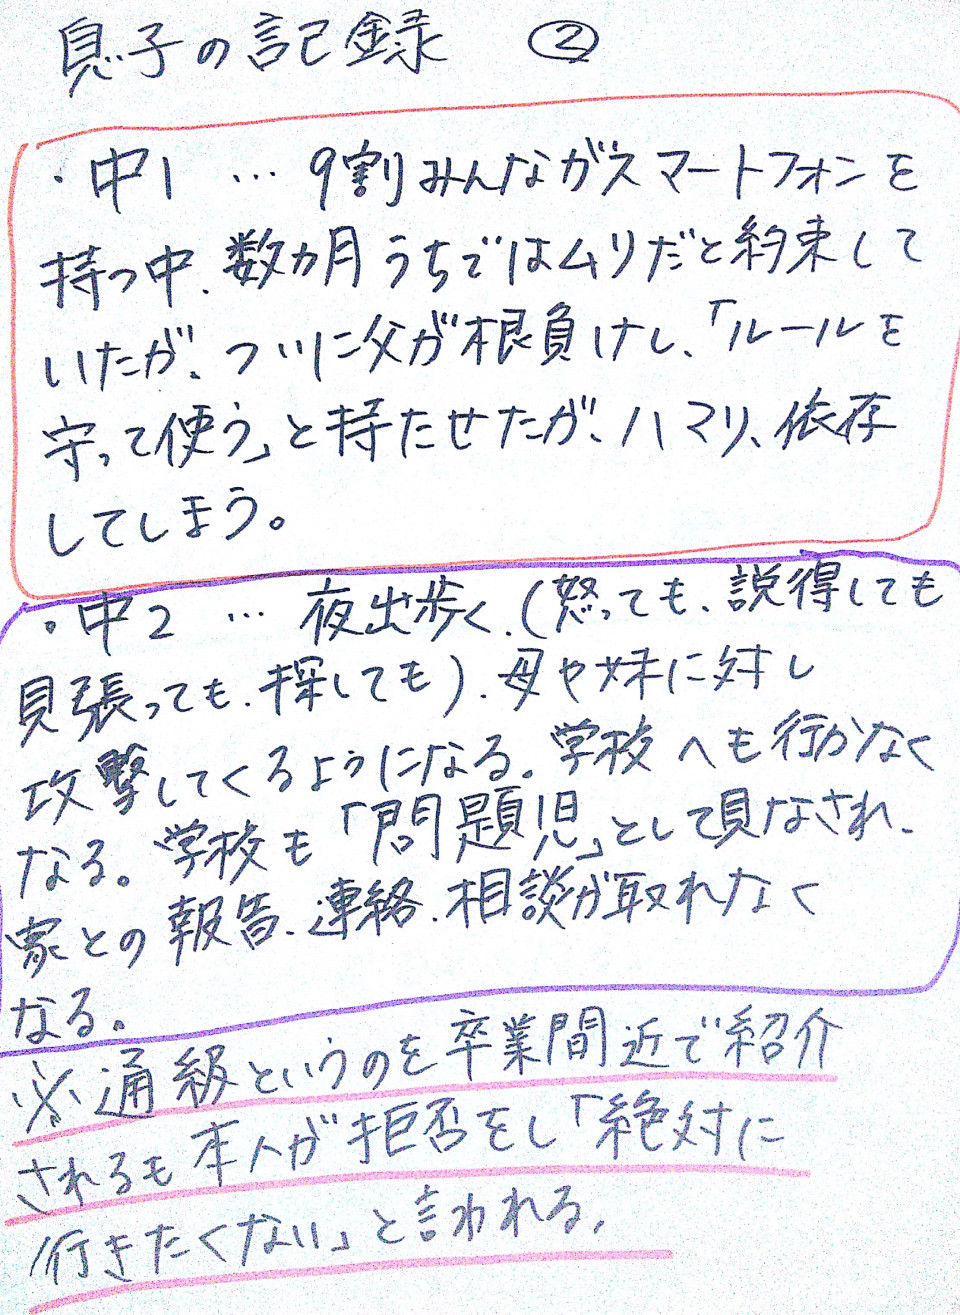 息子の記録 ②
・中1 … 9割みんながスマートフォンを
持つ中、数カ月うちではムリだと約束して
いたが、ついに父が根負けし、「ルールを
守って使う」と持たせたが、ハマり、依存
してしまう。
・中2 … 夜出歩く、(怒っても、説得しても
見張っても、探しても)、母や妹に対し
攻撃してくるようになる。学校へも行かなく
なる。学校も「問題児」として見なされ、
家との報告、連絡、相談が取れなく
なる。
※通級というのを卒業間近で紹介
されるも本人が拒否をし「絶対に
行きたくない」と言われる。